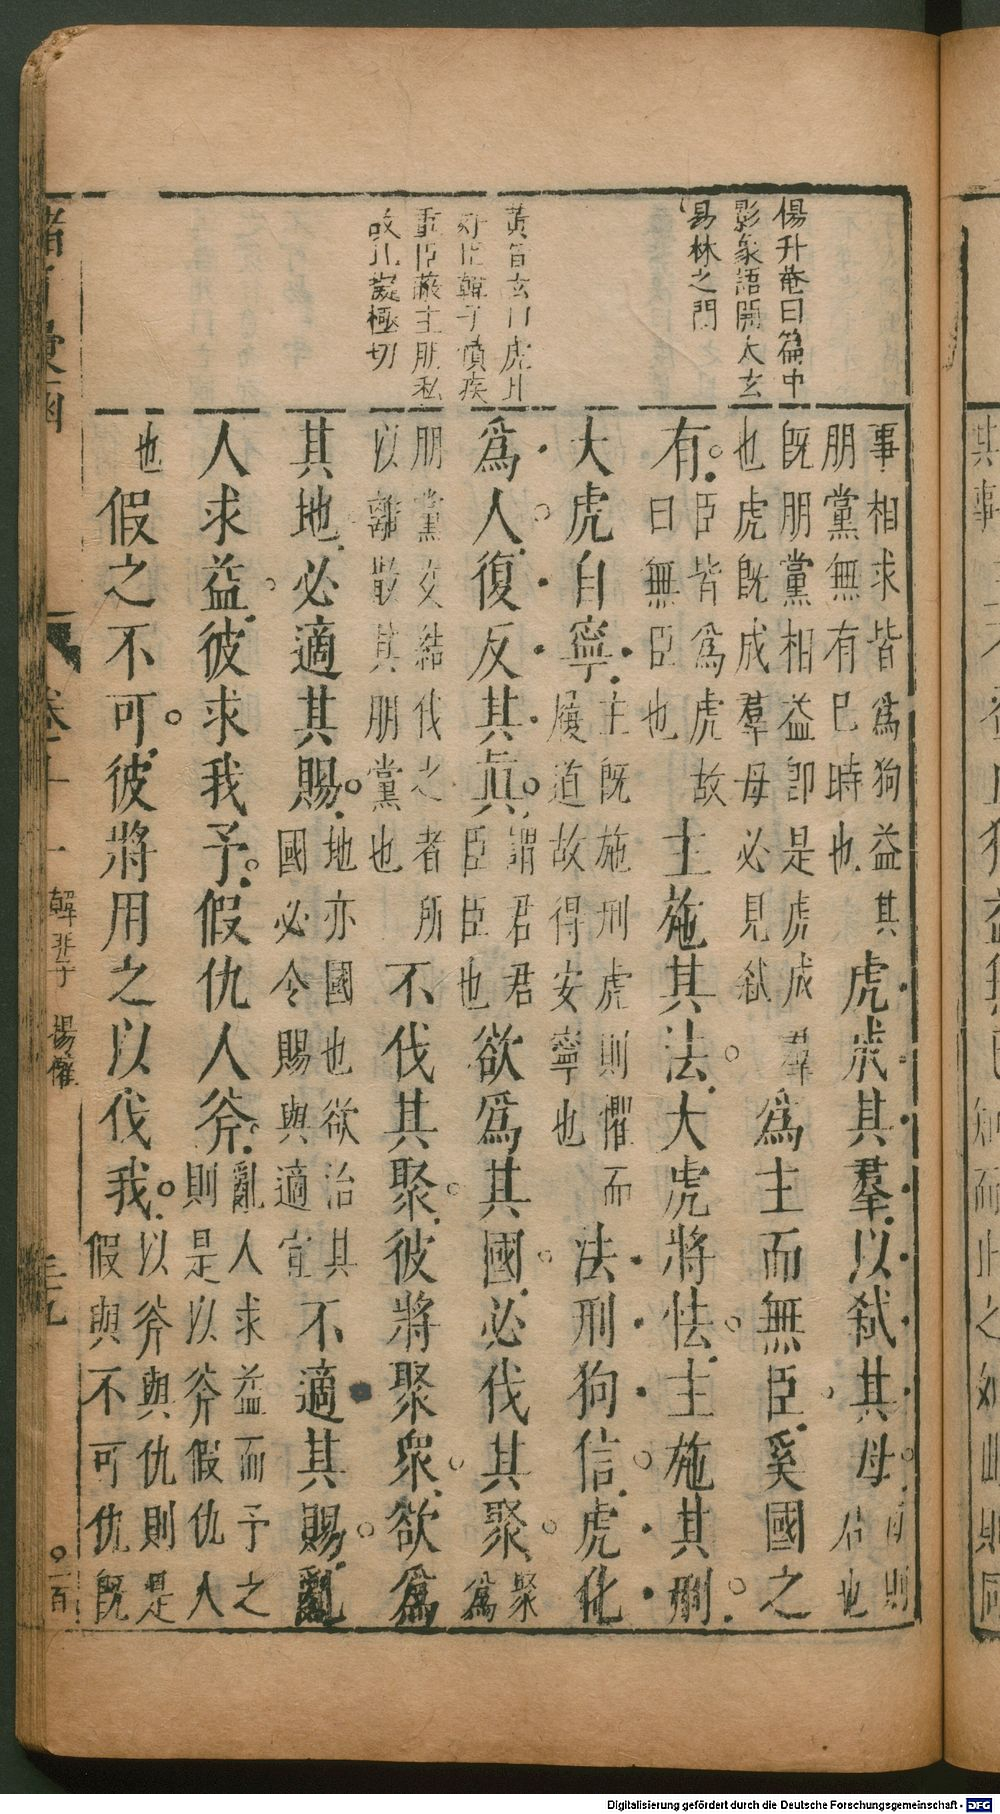 楊升菴曰篇中
影象語開太玄
易林之門
重臣蔽主朋私
事相求皆爲狗益其
朋黨無有已時也
虎成其羣以弑其母
君也
既朋黨相益即是虎成羣
也虎既成羣母必見弑
爲主而無臣奚國之
有
臣皆爲虎故
曰無臣也
主施其法大虎將怯主施其刑
大虎自寧
主既施刑虎則懼而
履道故得安寧也
法刑狗信虎化
爲人復反其眞
謂君君
臣臣也
欲爲其國必伐其聚
聚
爲
朋黨交結伐之者所
以離散其朋黨也
不伐其聚彼將聚衆欲爲
其地必適其賜
地亦國也欲治其
國必令賜與適宜
不適其賜亂
人求益彼求我予假仇人斧
亂人求益而予之
則是以斧假仇人
也
假之不可彼將用之以伐我
以斧與仇則是
假與不可仇既
韓非子 揚權
Digitalisierung gefördert durch die Deutsche Forschungsgemeinschaft - DFG